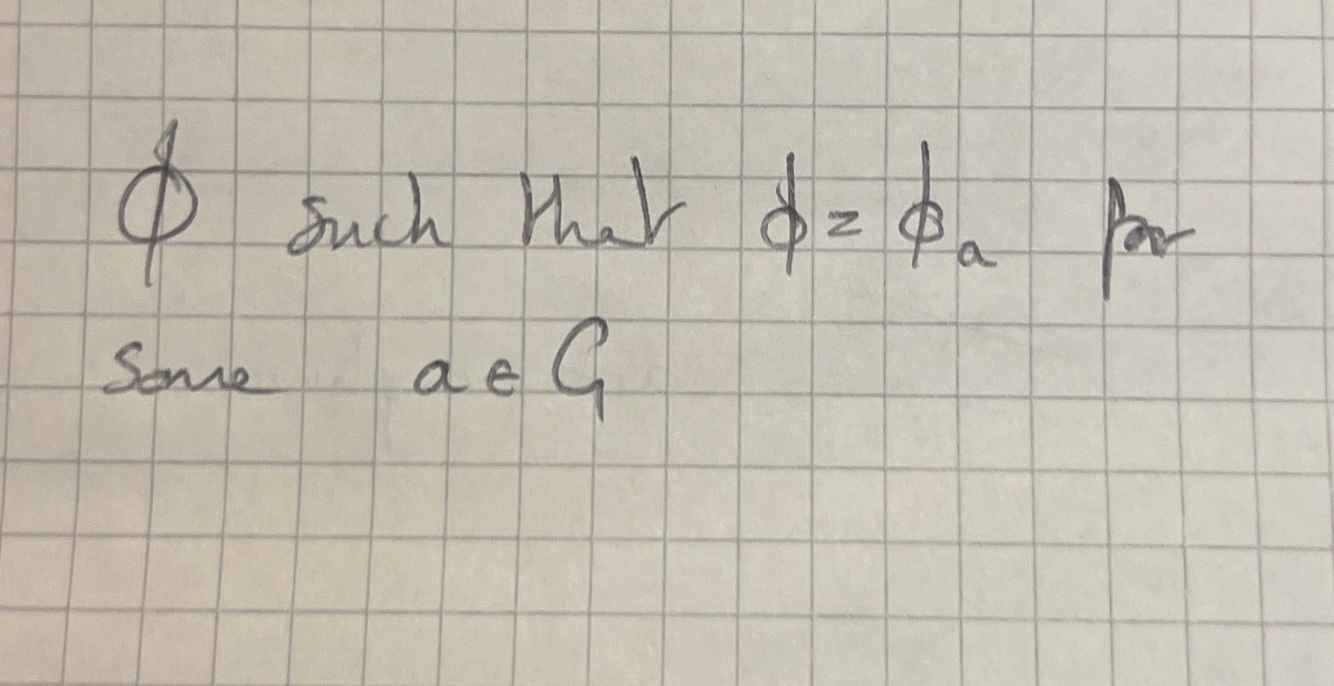 ϕ such that ϕ = ϕₐ for
some a ∈ G